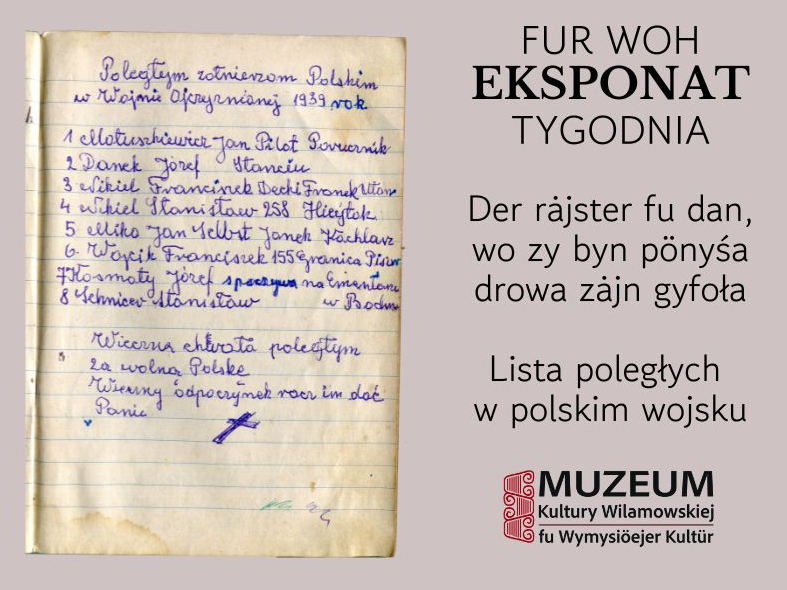 Poległym żołnierzom Polskim
w Wojnie Ojczyźnianej 1939 rok
1 Matuszkiewicz Jan Pilot Porucznik
2 Danek Józef Stanciu
3 Nikiel Franciszek Decki Franek Ułan
4 Nikiel Stanisław 258
5 Mika Jan Selbst Janek Kächlarz
6. Wojcik Franciszek 155 Granica
7 Kosmaty Józef spoczywa na
8 Schneider Stanisław w
Wieczna chwała poległym
za wolną Polskę
Wieczny odpoczynek racz im dać
Panie
FUR WOH
EKSPONAT
TYGODNIA
Der rȧjster fu dan,
wo zy byn pönyśa
drowa zȧjn gyfoła
Lista poległych
w polskim wojsku
MUZEUM
Kultury Wilamowskiej
fu Wymysiöejer Kultür